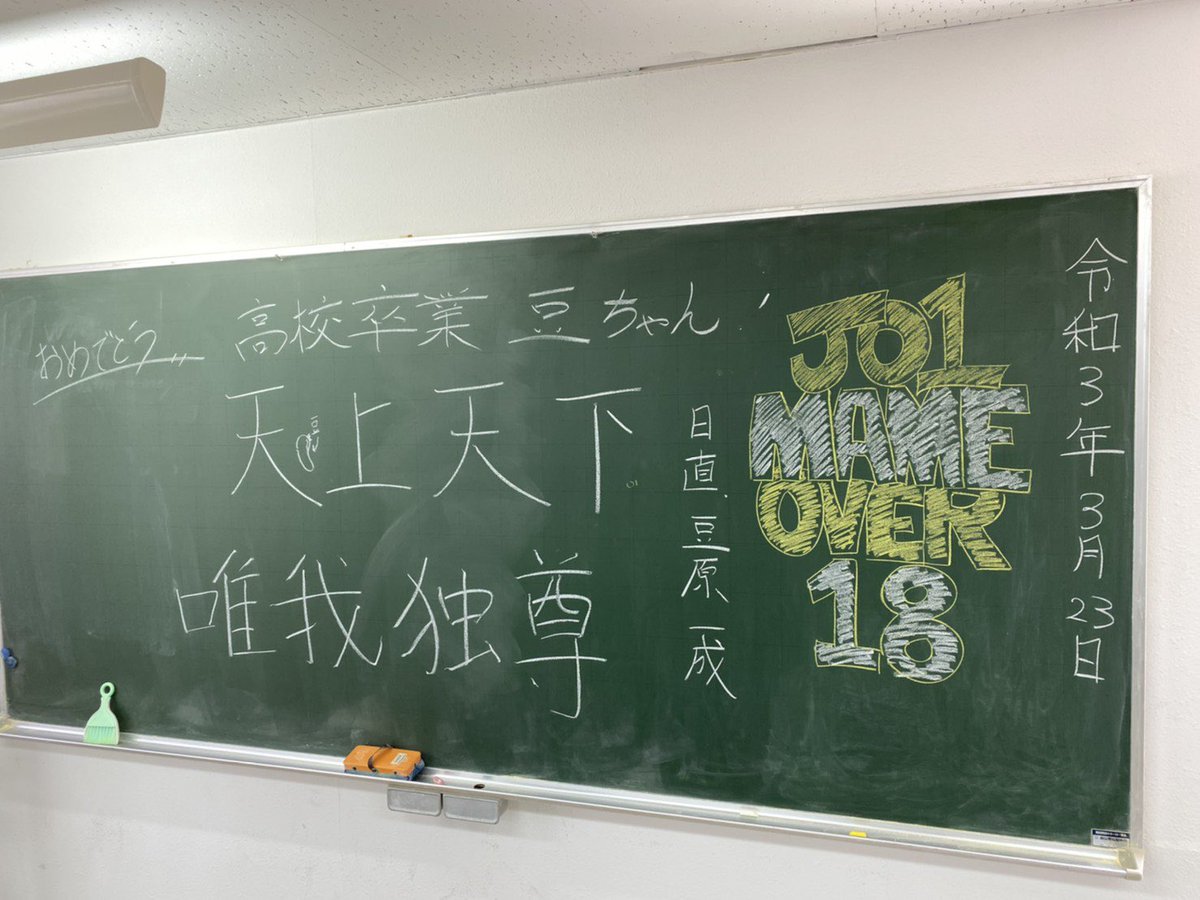 令和3年3月23日
JO1
MAME
OVER
18
日直 豆原一成
高校卒業 豆ちゃん!
おめでとう
天上天下
唯我独尊